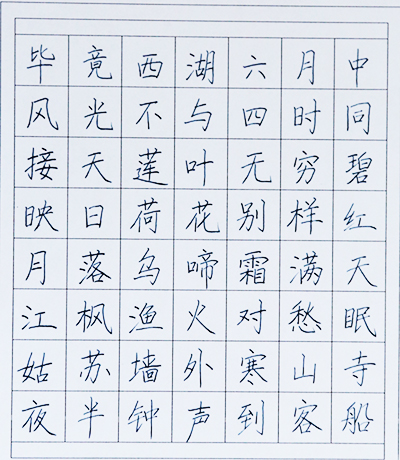 毕竟西湖六月中
风光不与四时同
接天莲叶无穷碧
映日荷花别样红
月落乌啼霜满天
江枫渔火对愁眠
姑苏墙外寒山寺
夜半钟声到客船